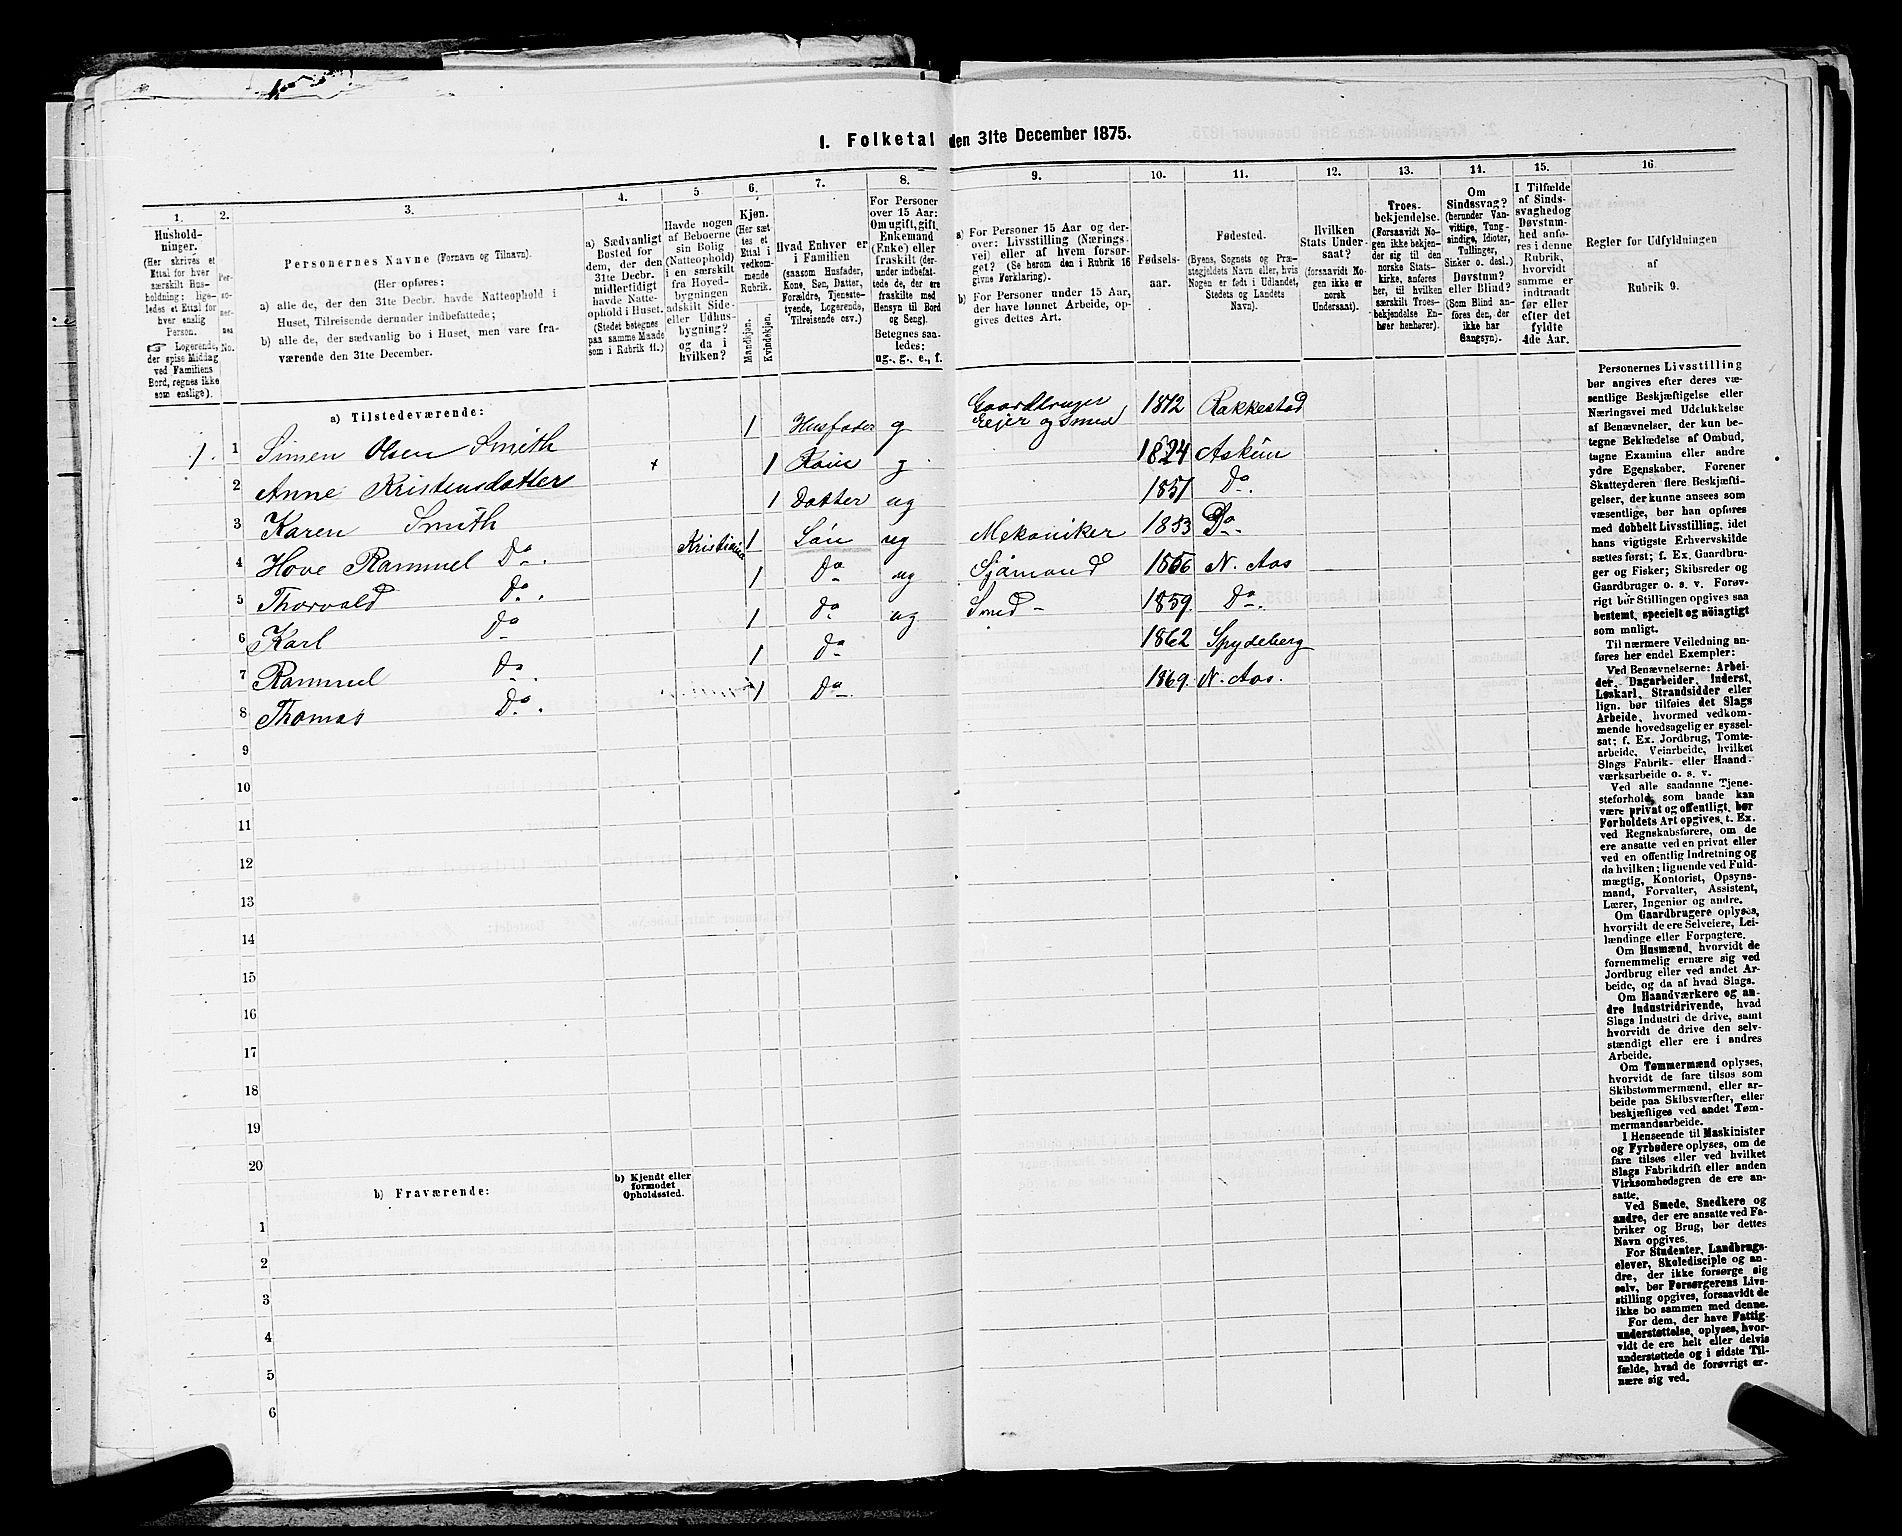 1. Folketal den 31te December 1875.
1. 2. 3. 4. 5. 6. 7. 8. 9. 10. 11. 12. 13. 14. 15. 16.
Hushold-
ninger.
(Her skrives et
Ettal for hver
særskilt Hus-
holdning; lige-
ledes et Ettal for
hver enslig
Person.
☞ Logerende,
der spise Middag
ved Familiens
Bord, regnes ikke
som enslige).
Per-
so-
ner-
nes
No.
Personernes Navne (Fornavn og Tilnavn).
(Her opføres:
a) alle de, der den 31te Decbr. havde Natteophold i
Huset, Tilreisende derunder indbefattede;
b) alle de, der sædvanlig bo i Huset, men vare fra-
værende den 31te December.
a) Sædvanligt
Bosted for
dem, der den
31te Decbr.
midlertidigt
havde Natte-
ophold i Huset.
(Stedet betegnes
paa samme Maade
som i Rubrik 11.)
Havde nogen
af Beboerne
sin Bolig
(Natteophold)
i en særskilt
fra Hoved-
bygningen
adskilt Side-
eller Udhus-
bygning?
og da i
hvilken?
Kjøn.
(Her sæt
tes et
Ettal i
vedkom-
mende
Rubrik.
Mandkjøn.
Kvindekjøn.
Hvad Enhver er
i Familien
(saasom Husfader,
Kone, Søn, Datter,
Forældre, Tjeneste-
tyende, Logerende,
Tilreisende osv.)
For Personer
over 15 Aar:
Om ugift, gift,
Enkemand
(Enke) eller
fraskilt (der-
under indbefat-
tede de, der ere
fraskilte med
Hensyn til Bord
og Seng).
Betegnes saa-
ledes:
ug., g., e., f.
a) For Personer over 15 Aar og der-
over: Livsstilling (Nærings-
vei) eller af hvem forsør-
get? (Se herom den i Rubrik 16
givne Forklaring).
b) For Personer under 15 Aar,
der have lønnet Arbeide, op-
gives dettes Art.
Fødsels-
aar.
Fødested.
(Byens, Sognets og Præ-
stegjeldets Navn eller, hvis
Nogen er født i Udlandet,
Stedets og Landets
Navn).
Hvilken
Stats Under-
saat?
(forsaavidt No-
gen ikke er
norsk
Undersaat).
Troes-
bekjendelse.
(Forsaavidt No-
gen ikke bekjen-
der sig til den
norske Stats-
kirke, anføres
her, til hvilken
særskilt Troes-
bekjendelse En-
hver henhører).
Om
Sindssvag?
(herunder Van-
vittige, Tung-
sindige, Idioter,
Tullinger,
Sinker o. desl.)
Døvstum?
eller Blind?
(Som Blind an-
føres den, der
ikke har
Gangsyn).
I Tilfælde
af Sinds-
svaghed og
Døvstum-
hed anfø-
res i denne
Rubrik,
hvorvidt
samme er
indtraadt
før eller
efter det
fyldte
4de Aar.
Regler for Udfyldningen
af
Rubrik 9.
a) Tilstedeværende:
1. 1 Simen Olsen Smith 1 Husfader g Gaardbruger Eejer og Smed 1812 Rakkestad
2 Anne Kristensdatter + 1 Kone g. 1824 Askim
3 Karen Smith 1 Datter ug 1851 Do.
4 Hove Rammel Do. Kristiania 1 Søn ug Mekaniker 1853 Do
5 Thorvald Do. 1 Do ug Sjömand 1856 N. Aas
6 Karl Do 1 Do ug Smed 1859. Do.
7 Rammel Do. 1 Do 1862 Spydeberg
8 Thomas Do. 1 Do. 1869. N. Aas.
9
10
11
12
13
14
15
16
17
18
19
20
b) Fraværende:
b) Kjendt eller
formodet
Opholdssted.
1
2
3
4
5
6
Personernes Livsstilling
bør angives efter deres væ-
sentlige Beskjæftigelse eller
Næringsvei med Udelukkelse
af Benævnelser, der kun be-
tegne Beklædelse af Ombud,
tagne Examina eller andre
ydre Egenskaber. Forener
Skatteyderen flere Beskjæfti-
gelser, der kunne ansees som
væsentlige, bør han opføres
med dobbelt Livsstilling, idet
hans vigtigste Erhvervskilde
sættes først; f. Ex. Gaardbru-
ger og Fisker; Skibsreder og
Gaardbruger o. s. v. Forøv-
rigt bør Stillingen opgives saa
bestemt, specielt og nøiagtigt
som muligt.
Til nærmere Veiledning an-
føres her endel Exempler:
Ved Benævnelserne: Arbei-
der, Dagarbeider, Inderst,
Løskarl, Strandsidder eller
lign. bør tilføies det Slags
Arbeide, hvormed vedkom-
mende hovedsagelig er syssel-
sat; f. Ex. Jordbrug, Tomte-
arbeide, Veiarbeide, hvilket
Slags Fabrik- eller Haand-
værksarbeide o. s. v.
Ved alle saadanne Tjene-
steforhold, som baade kan
være privat og offentligt, bør
Forholdets Art opgives, t. Ex.
ved Regnskabsførere, om de
ere ansatte ved en privat eller
ved en offentlig Indretning og
da hvilken; lignende ved Fuld-
mægtig, Kontorist, Opsyns-
mand, Forvalter, Assistent,
Lærer, Ingeniør og andre.
Om Gaardbrugere oplyses,
hvorvidt de ere Selveiere, Lei-
lændinge eller Forpagtere.
Om Husmænd, hvorvidt de
fornemmelig ernære sig ved
Jordbrug eller ved andet Ar-
beide, og da af hvad Slags.
Om Haandværkere og an-
dre Industridrivende, hvad
Slags Industri de drive, samt
hvorvidt de drive den selv-
stændigt eller ere i andres
Arbeide.
Om Tømmermænd oplyses,
hvorvidt de fare tilsøs som
Skibstømmermænd, eller ar-
beide paa Skibsværfter, eller
beskjæftiges ved andet Tøm-
mermandsarbeide.
I Henseende til Maskinister
og Fyrbødere oplyses, om de
fare tilsøs eller ved hvilket
Slags Fabrikdrift eller anden
Virksombedsgren de ere an-
satte.
Ved Smede, Snedkere og
andre, der ere ansatte ved Fa-
briker og Brug, bør dettes
Navn opgives.
For Studenter, Landbrugs-
elever, Skoledisciple og an-
dre, der ikke forsørge sig
selv, bør Forsørgerens Livs-
stilling opgives, forsaavidt de
ikke bo sammen med denne.
For dem, der have Fattig-
understøttelse, oplyses, hvor-
vidt de ere helt eller delvis
understøttede og i sidste Til-
fælde, hvad de forøvrigt er-
nære sig ved.